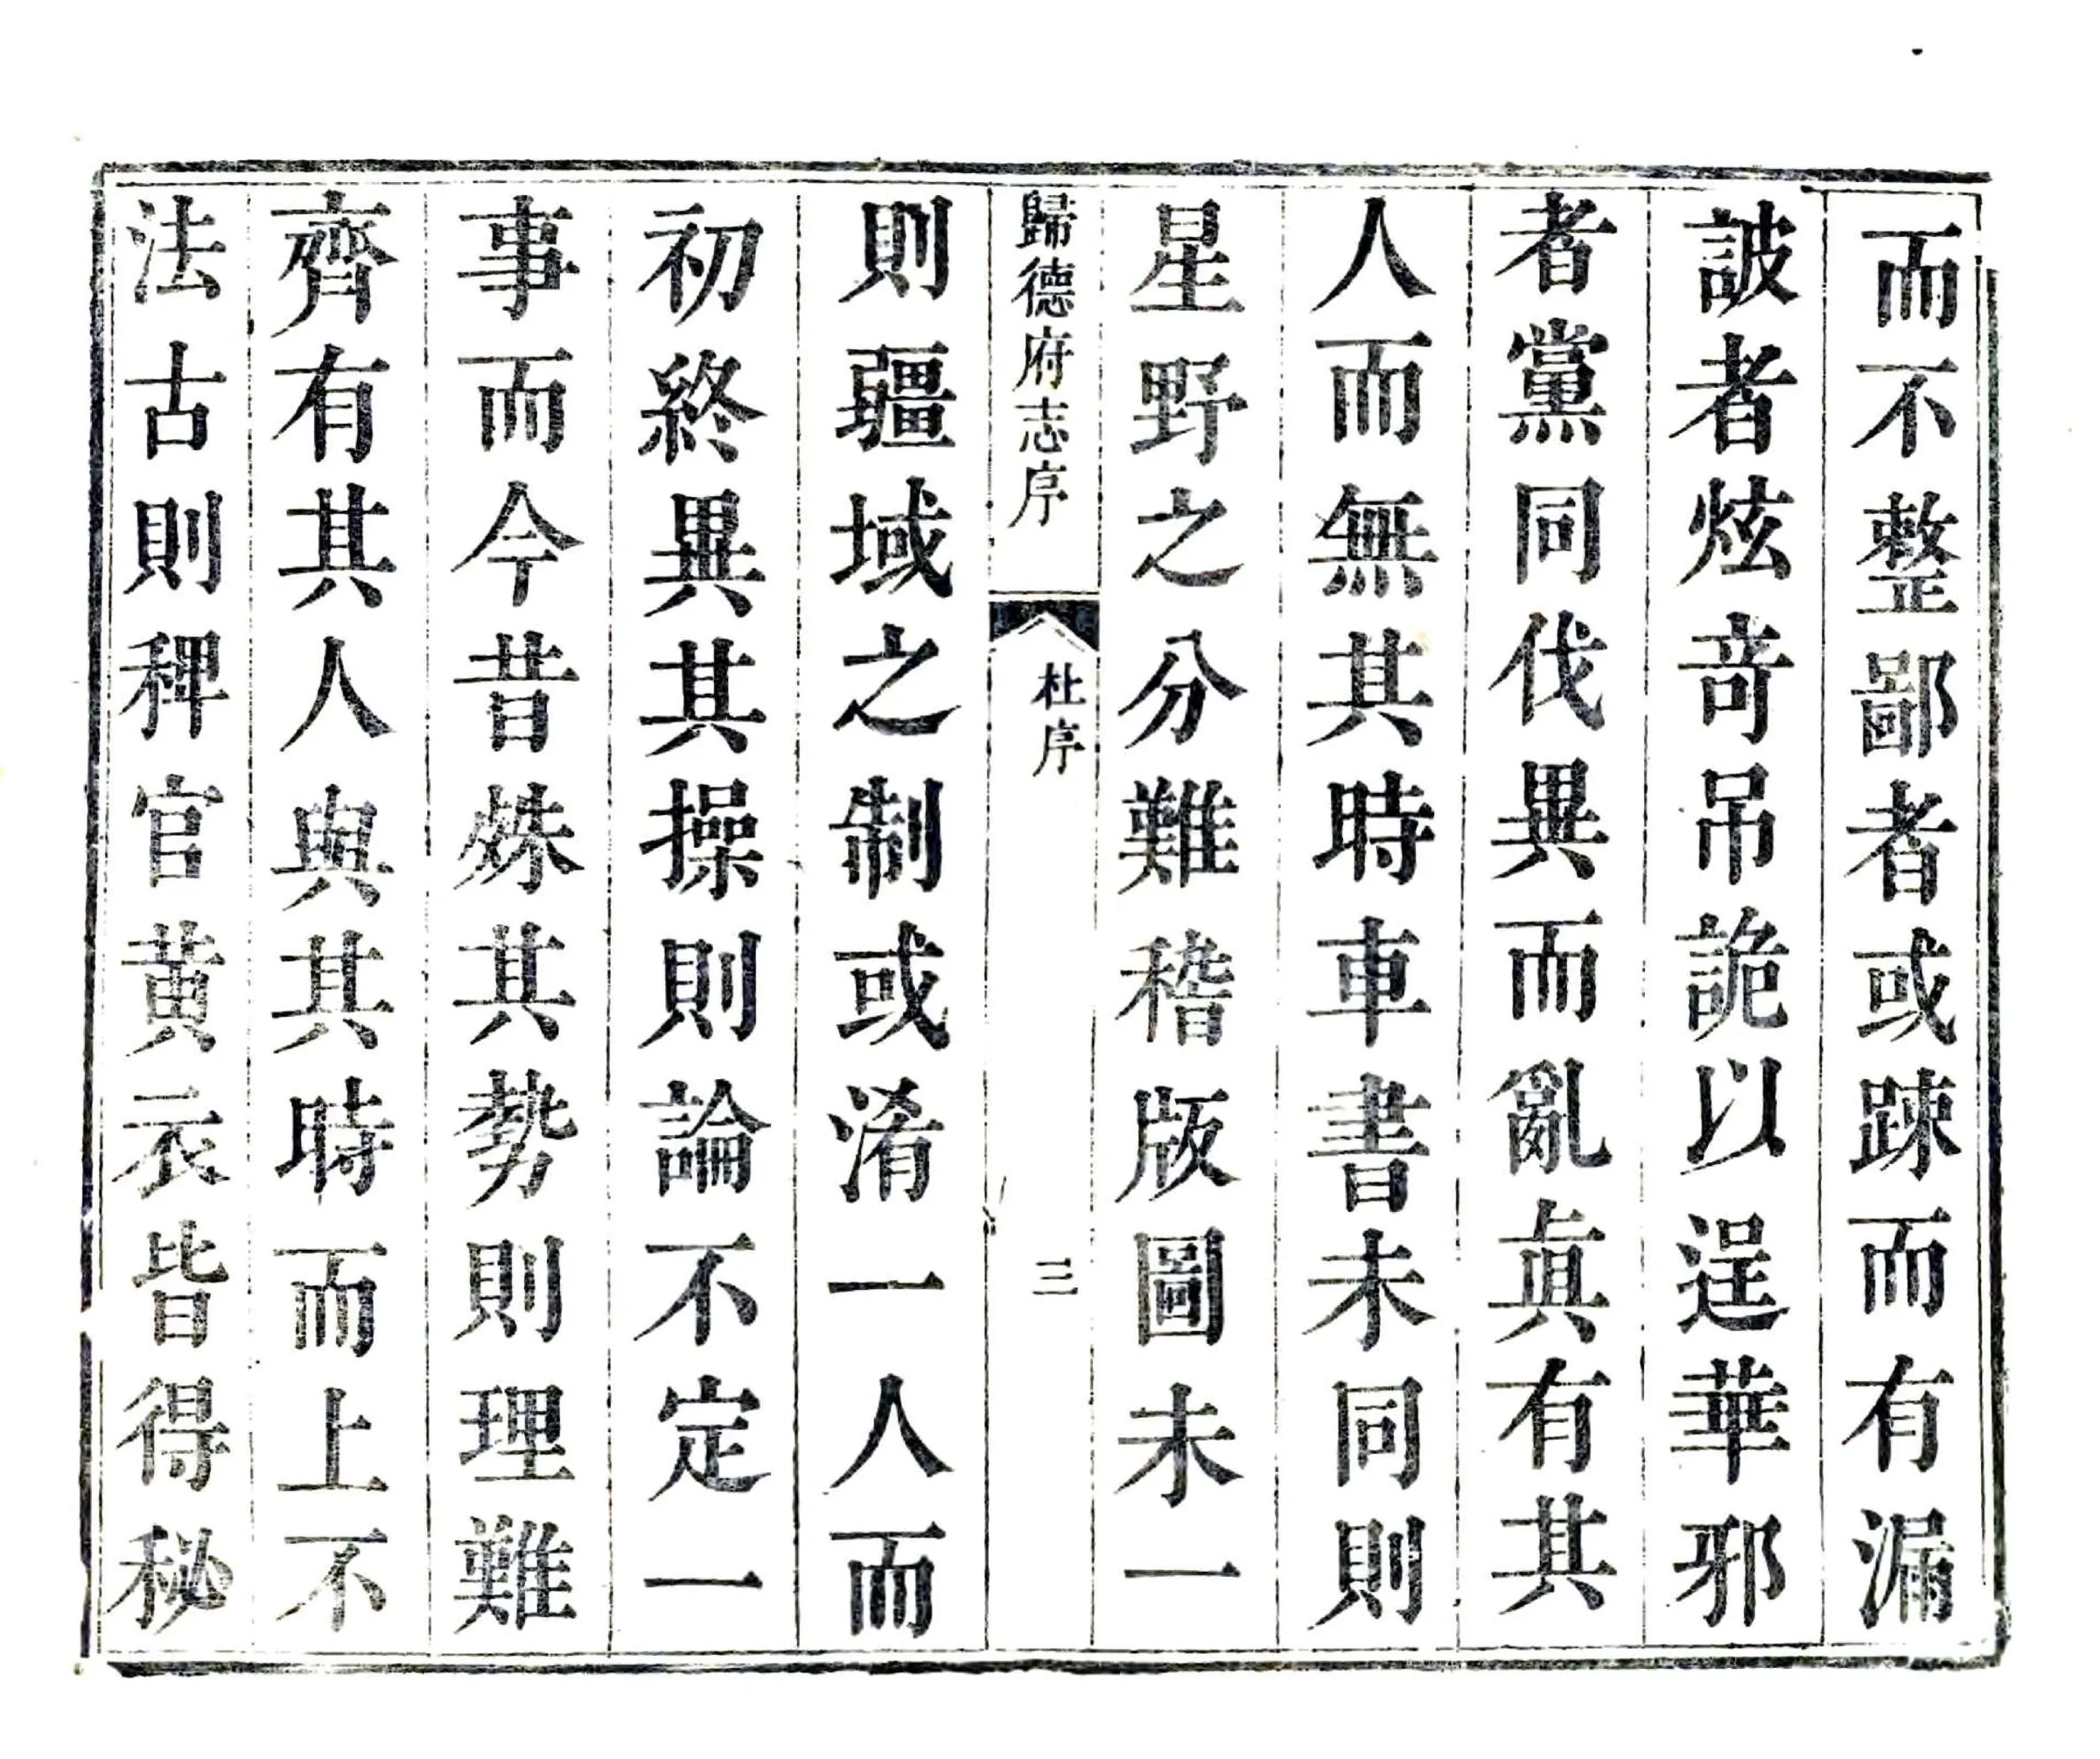 而不整鄙者或踈而有漏
詖者炫竒吊詭以逞華邪
者黨同伐異而亂眞有其
人而無其時車書未同則
星野之分難稽版圖未一
歸德府志序
杜序
三
則疆域之制或淆一人而
初終異其操則論不定一
事而今昔殊其勢則理難
齊有其人與其時而上不
法古則稗官黄衣皆得秘